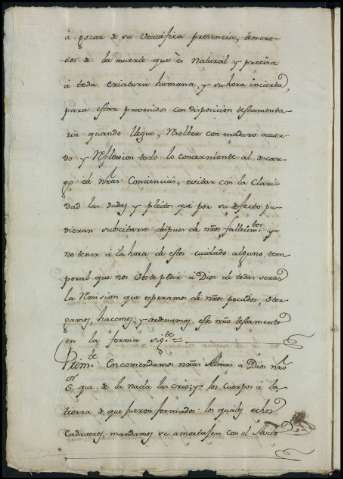 á gozar de su Beatifica presencia, temero-
sos de la muerte que és natural y precisa
á toda criatura humana, y su hora incierta,
para estar prevenidos con disposicion testamenta-
ria quando llegue, resolver con maduro acuer-
do y reflexion todo lo concerniente al descar-
go de nrãs Conciencias, evitar con la Clari-
dad las dudas y pleitos que por su defecto pu-
dieran subcitarse despues de nrõs fallecim.tos y
no tener á la hora de estos cuidado alguno tem-
poral que nos obste pedir á Dios de todas veras
la remision que esperamos de nrõs pecados, otor-
gamos, hacemos, y ordenamos este nrõ testamento
en la forma sig.te
Prim.te Encomendamos nrãs Almas á Dios nrõ
S.or que de la nada las crió; y los cuerpos á la
tierra de que fueron formados los quales echos
Cadaveres, mandamos se amortajen con el